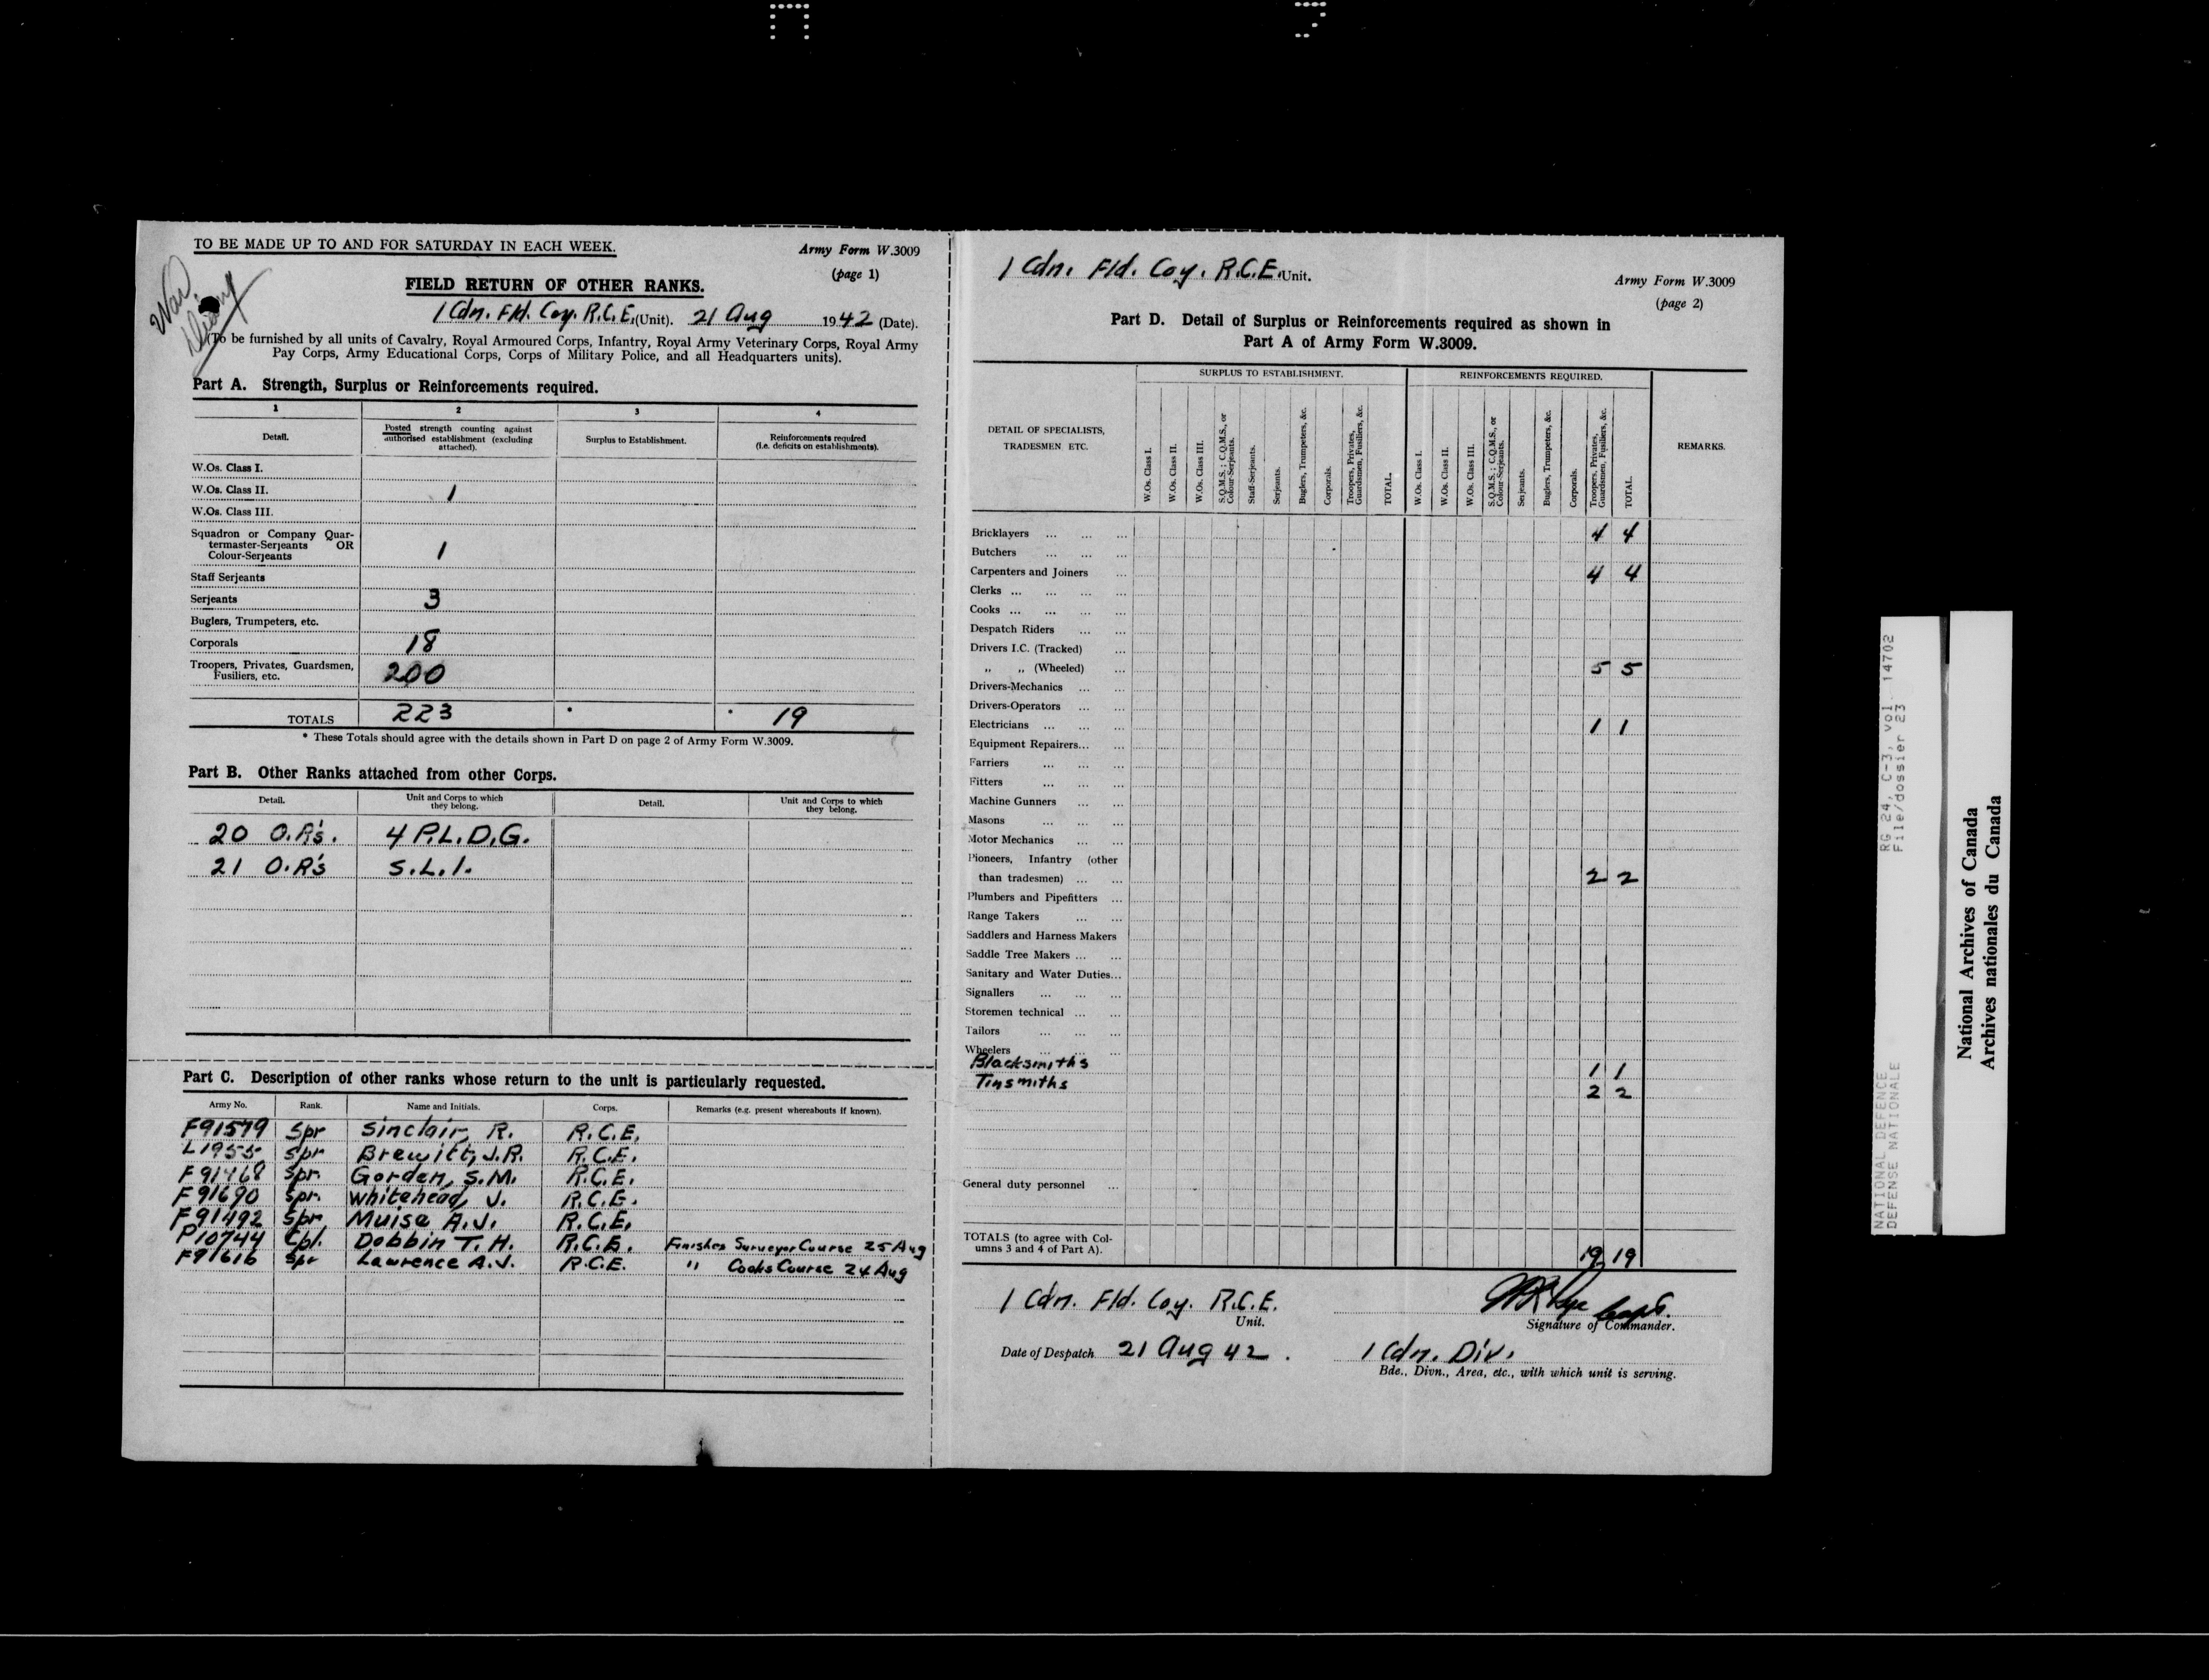 TO BE MADE UP TO AND FOR SATURDAY IN EACH WEEK.
Army Form W.3009
(page 1)
War Diary
FIELD RETURN OF OTHER RANKS.
1 Cdn. Fld. Coy. R.C.E. (Unit). 21 Aug 1942 (Date).
(To be furnished by all units of Cavalry, Royal Armoured Corps, Infantry, Royal Army Veterinary Corps, Royal Army
Pay Corps, Army Educational Corps, Corps of Military Police, and all Headquarters units).
Part A. Strength, Surplus or Reinforcements required.
1 2 3 4
Detail. Posted strength counting against authorised establishment (excluding attached). Surplus to Establishment. Reinforcements required (i.e. deficits on establishments).
W.Os. Class I.
W.Os. Class II. 1
W.Os. Class III.
Squadron or Company Quar-
termaster-Serjeants OR
Colour-Serjeants 1
Staff Serjeants
Serjeants 3
Buglers, Trumpeters, etc.
Corporals 18
Troopers, Privates, Guardsmen,
Fusiliers, etc. 200
TOTALS 223 * * 19
* These Totals should agree with the details shown in Part D on page 2 of Army Form W.3009.
Part B. Other Ranks attached from other Corps.
Detail. Unit and Corps to which they belong. Detail. Unit and Corps to which they belong.
20 O.R's. 4 P.L.D.G.
21 O.R's S.L.I.
Part C. Description of other ranks whose return to the unit is particularly requested.
Army No. Rank. Name and Initials. Corps. Remarks (e.g. present whereabouts if known).
F91579 Spr Sinclair, R. R.C.E.
L1955 Spr Brewitt, J.R. R.C.E.
F91468 Spr. Gorden, S.M. R.C.E.
F91690 Spr. Whitehead, J. R.C.E.
F91492 Spr Muise A.J. R.C.E.
P10744 Cpl. Dobbin T.H. R.C.E. Finishes Surveyor Course 25 Aug
F91616 Spr Lawrence A.J. R.C.E. " Cooks Course 24 Aug
1 Cdn. Fld. Coy. R.C.E. Unit.
Army Form W.3009
(page 2)
Part D. Detail of Surplus or Reinforcements required as shown in
Part A of Army Form W.3009.
DETAIL OF SPECIALISTS,
TRADESMEN ETC.
SURPLUS TO ESTABLISHMENT.
W.Os. Class I.
W.Os. Class II.
W.Os. Class III.
S.Q.M.S.; C.Q.M.S., or Colour-Serjeants.
Staff-Serjeants.
Serjeants.
Buglers, Trumpeters, &c.
Corporals.
Troopers, Privates, Guardsmen, Fusiliers, &c.
TOTAL.
REINFORCEMENTS REQUIRED.
W.Os. Class I.
W.Os. Class II.
W.Os. Class III.
S.Q.M.S.; C.Q.M.S., or Colour-Serjeants.
Serjeants.
Buglers, Trumpeters, &c.
Corporals.
Troopers, Privates, Guardsmen, Fusiliers, &c.
TOTAL.
REMARKS.
Bricklayers ... ... ... 4 4
Butchers ... ... ...
Carpenters and Joiners ... 4 4
Clerks ... ... ... ...
Cooks ... ... ... ...
Despatch Riders ... ...
Drivers I.C. (Tracked) ...
" " (Wheeled) ... 5 5
Drivers-Mechanics ... ...
Drivers-Operators ... ...
Electricians ... ... ... 1 1
Equipment Repairers... ...
Farriers ... ... ...
Fitters ... ... ...
Machine Gunners ... ...
Masons ... ... ...
Motor Mechanics ... ...
Pioneers, Infantry (other
than tradesmen) ... ... 2 2
Plumbers and Pipefitters ...
Range Takers ... ...
Saddlers and Harness Makers
Saddle Tree Makers ... ...
Sanitary and Water Duties...
Signallers ... ... ...
Storemen technical ... ...
Tailors ... ... ...
Wheelers ... ... ...
Blacksmiths 1 1
Tinsmiths 2 2
General duty personnel ...
TOTALS (to agree with Col-
umns 3 and 4 of Part A). 19 19
1 Cdn. Fld. Coy. R.C.E.
Unit.
Capt.
Signature of Commander.
Date of Despatch 21 Aug 42. 1 Cdn. Div.
Bde., Divn., Area, etc., with which unit is serving.
NATIONAL DEFENCE RG 24, C-3, vol. 14702
DEFENSE NATIONALE File/dossier 23
National Archives of Canada
Archives nationales du Canada